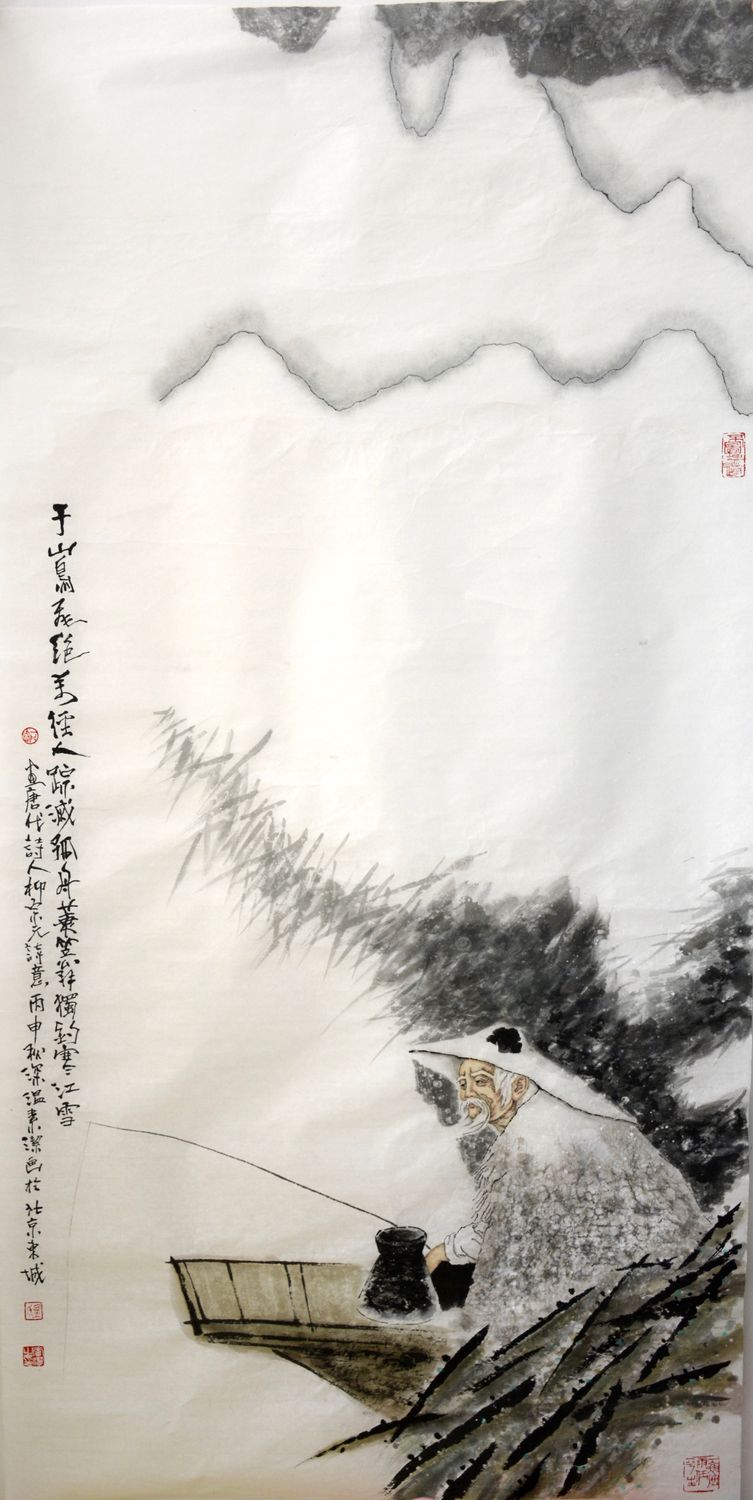 千山鳥飛絕萬徑人踪滅孤舟蓑笠翁獨釣寒江雪
畫唐代詩人柳宗元詩意丙申秋深温素潔画於北京東城